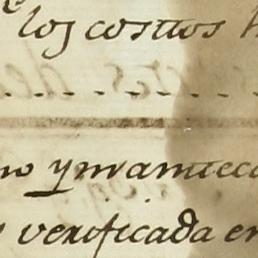 los costtos
no ymantteca
verificada en